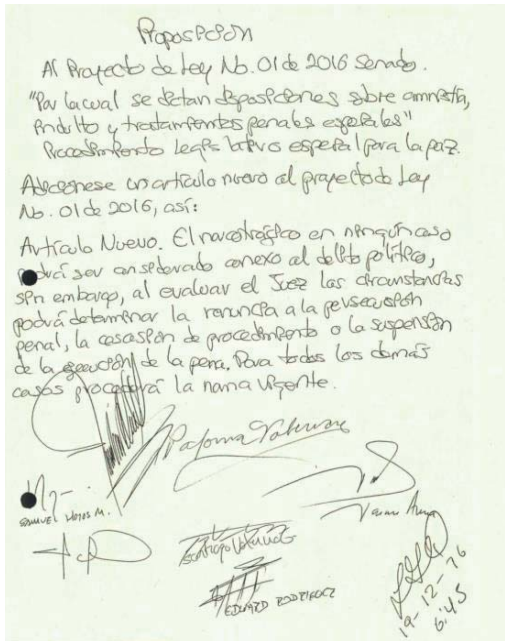 Proposición
Al Proyecto de Ley No. 01 de 2016 Senado.
"Por la cual se dictan disposiciones sobre amnistía,
indulto y tratamientos penales especiales"
Procedimiento Legislativo especial para la paz.
Adicionese un artículo nuevo al proyecto de Ley
No. 01 de 2016, así:
Artículo Nuevo. El narcotráfico en ningún caso
podrá ser considerado conexo al delito político,
sin embargo, al evaluar el Juez las circunstancias
podrá determinar la renuncia a la persecusión
penal, la cesasión de procedimiento o la suspensión
de la ejecución de la pena. Para todos los demás
casos procederá la norma vigente.
Paloma Valencia
SAMUEL HOYOS M.
Santiago Valencia
EDWARD RODRIGUEZ
19-12-16
6:45